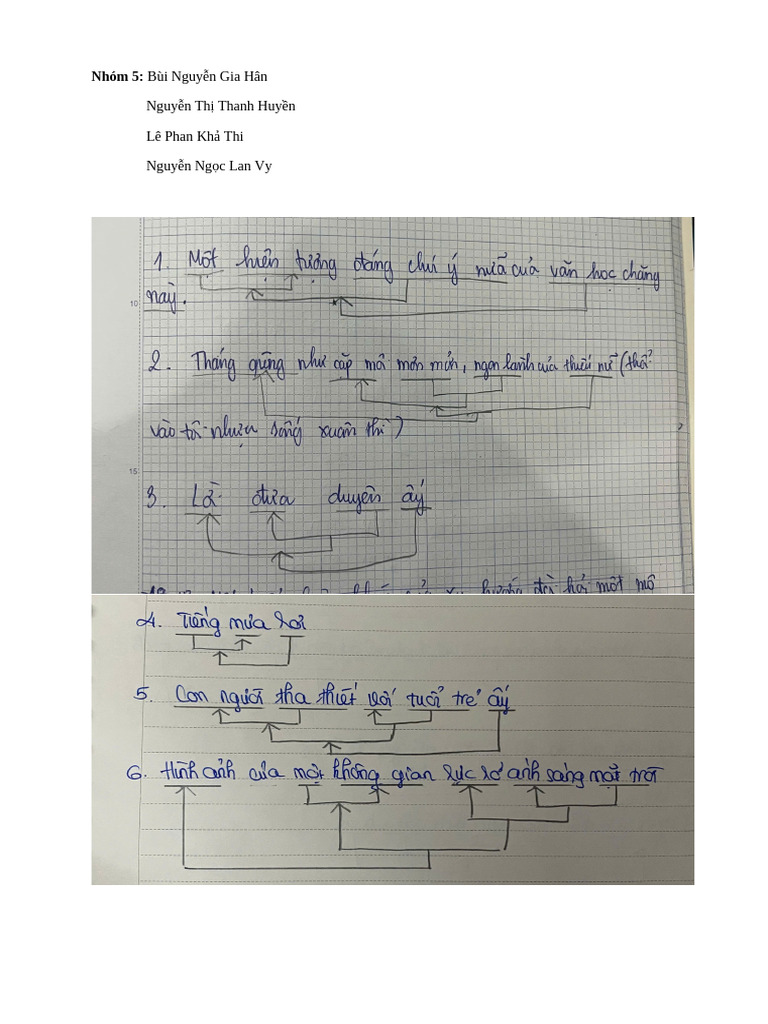 Nhóm 5: Bùi Nguyễn Gia Hân
Nguyễn Thị Thanh Huyền
Lê Phan Khả Thi
Nguyễn Ngọc Lan Vy
1. Một hiện tượng đáng chú ý nữa của văn học chặng
này.
10
2. Tháng giêng như cặp môi mơn mởn, ngon lành của thiếu nữ (thổ
vào tô nhựa sống xuân thì)
15
3. Là đứa duyên ấy
một mô
4. Tiếng mưa rơi
5. Con người tha thiết với tuổi trẻ ấy
6. Hình ảnh của một không gian rực rỡ ánh sáng mặt trời